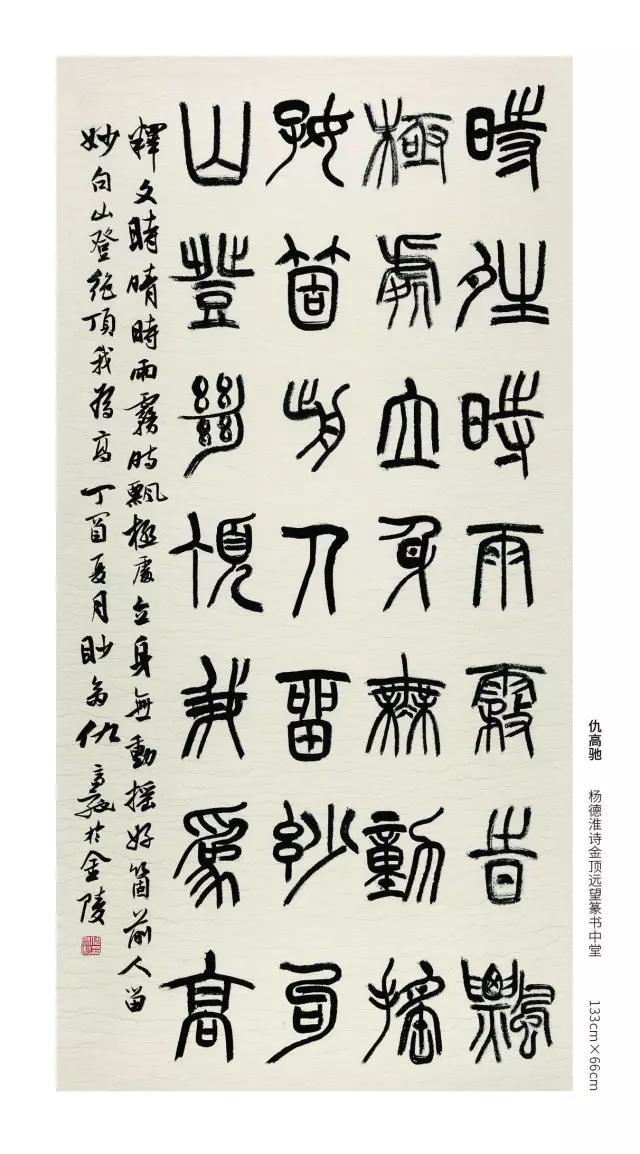 時晴時雨霧時飄
極處立身無動搖
好箇前人留妙句
山登絶頂我爲高
釋文時晴時雨霧時飄極處立身無動搖好箇前人留
妙句山登絶頂我爲高丁酉夏月仇高馳於金陵
仇高驰 杨德淮诗金顶远望篆书中堂 133cm×66cm